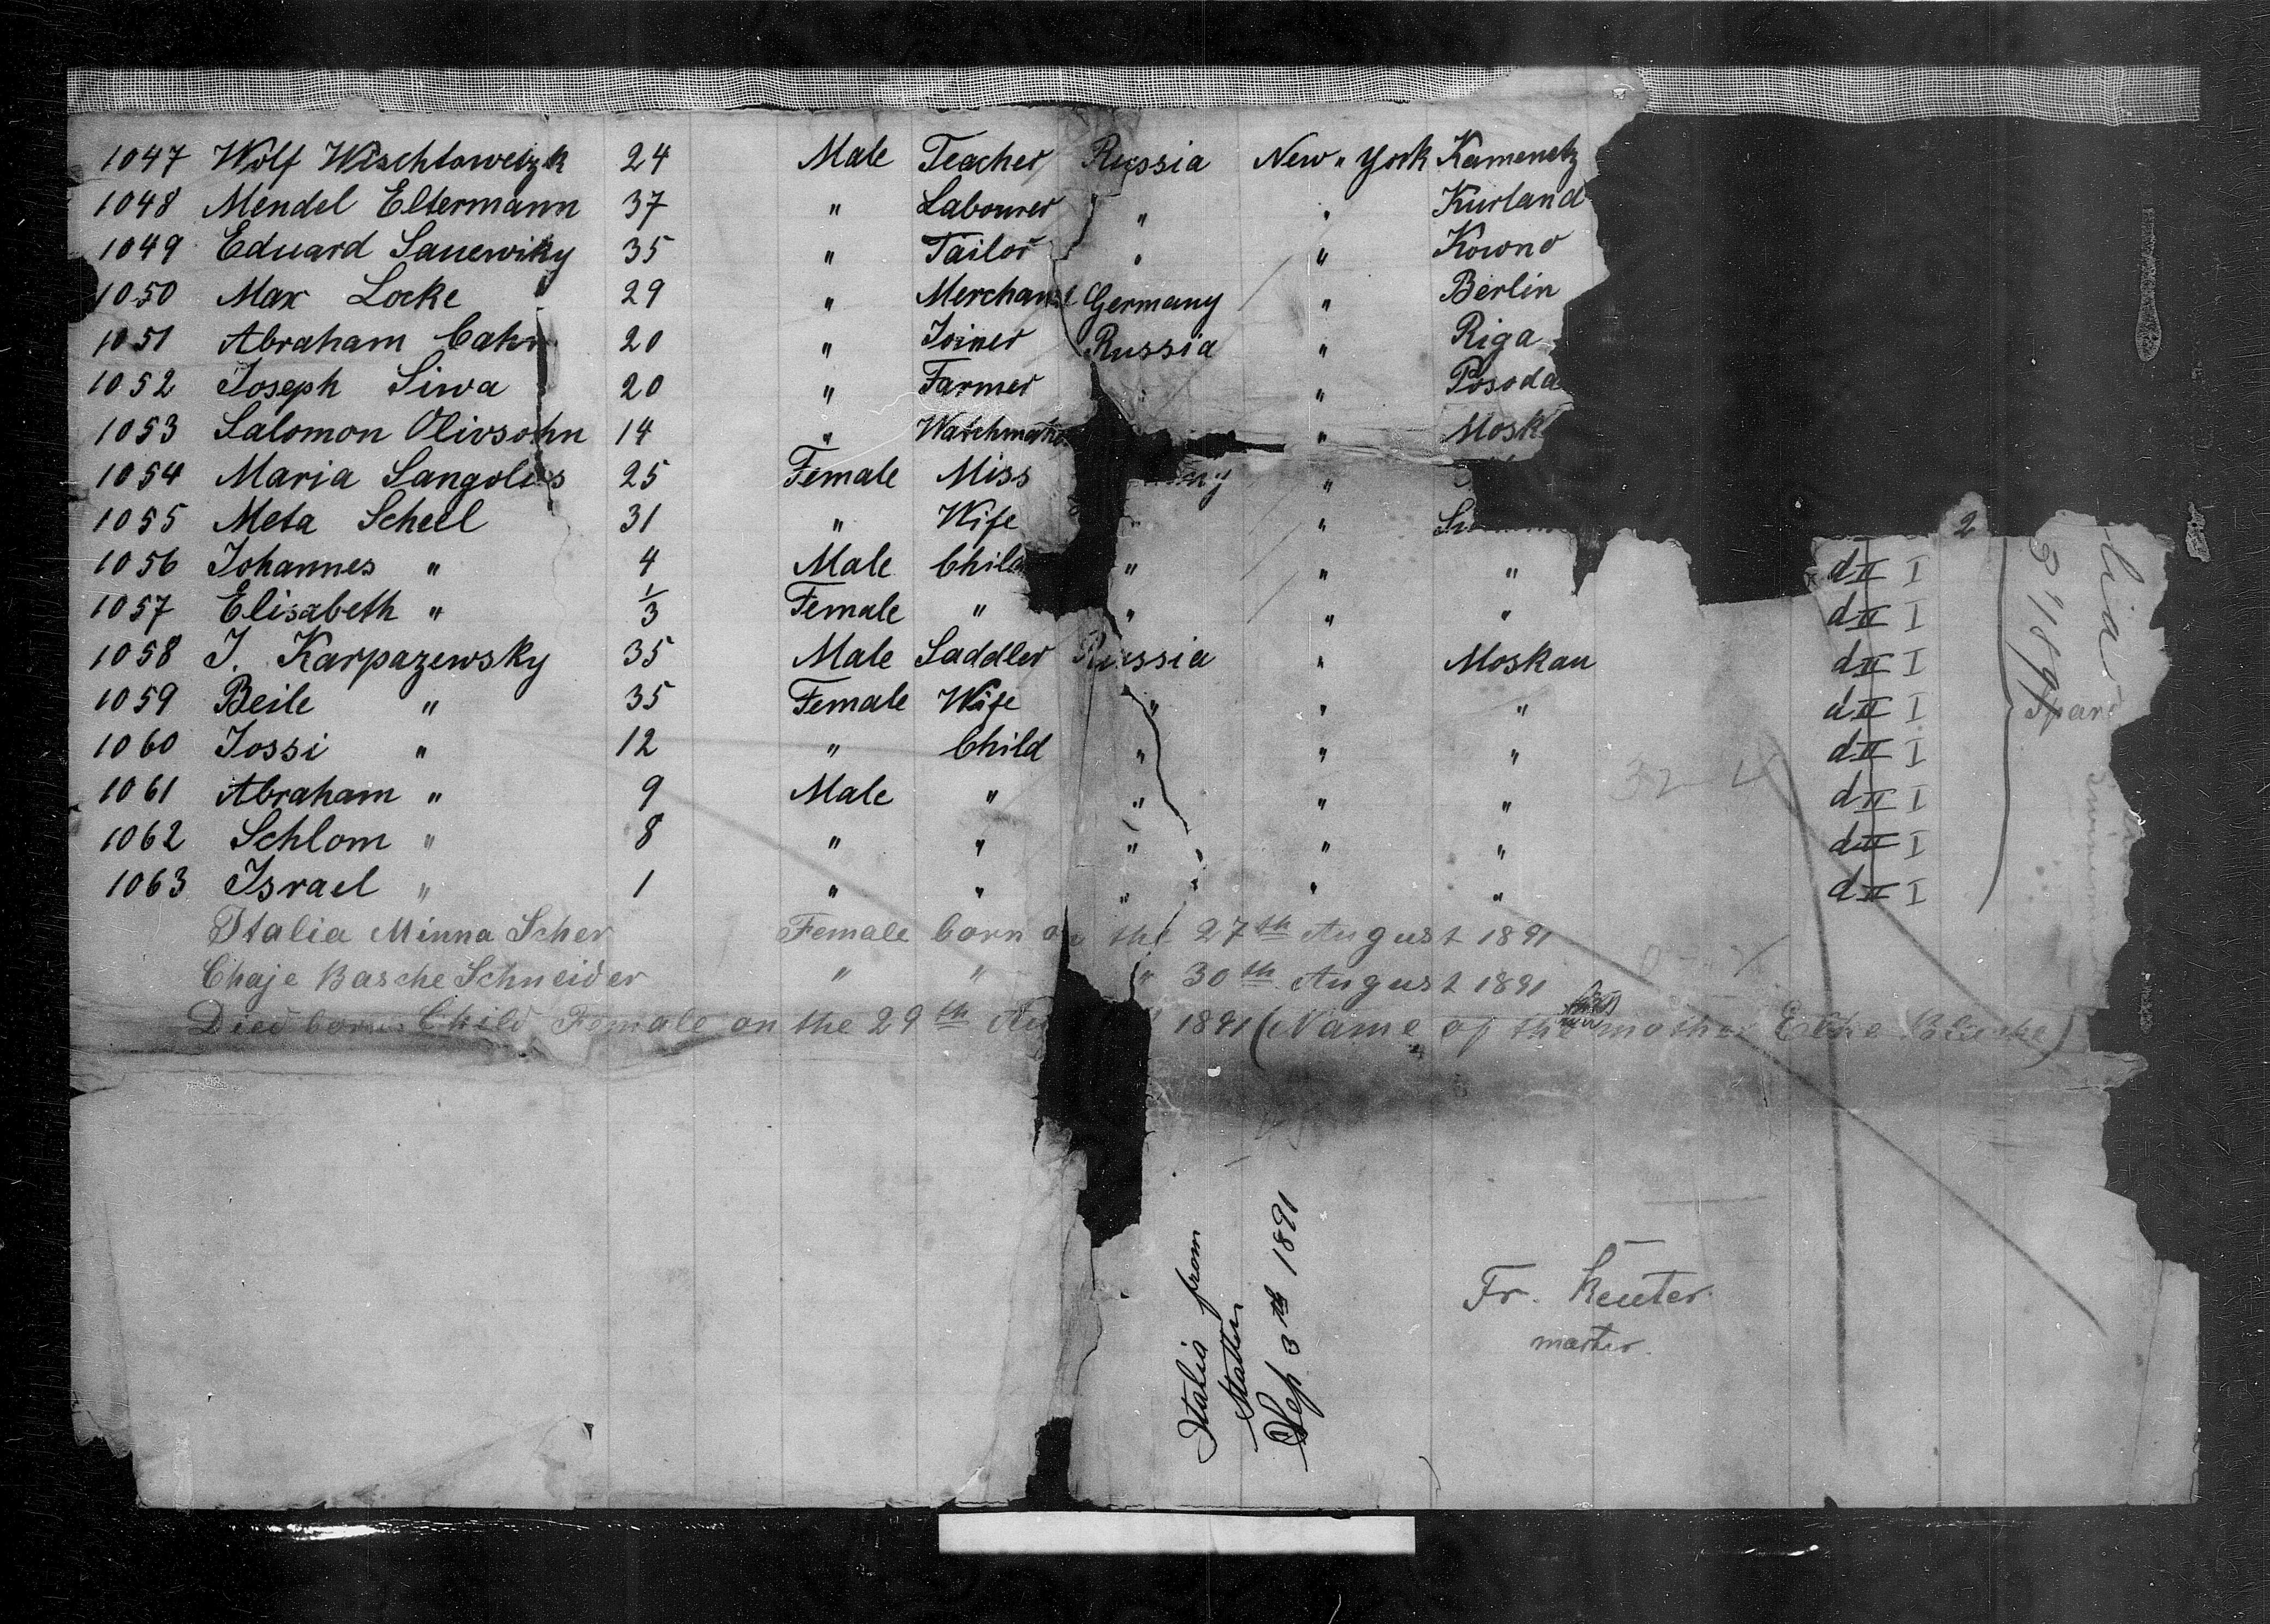 1047 Wolf Wischtowetzk 24 Male Teacher Russia New " York Kamenetz
1048 Mendel Eltermann 37 " Labourer " " Kurland
1049 Eduard Sauewiky 35 " Tailor " " Kowno
1050 Max Locke 29 " Merchant Germany " Berlin
1051 Abraham Cahn 20 " Joiner Russia " Riga
1052 Joseph Siwa 20 " Farmer " " Posoda
1053 Salomon Olivsohn 14 " " Mosk
1054 Maria 25 Female Miss ny "
1055 Meta Scheel 31 " Wife " "
1056 Johannes " 4 Male Child " " " d II I
1057 Elisabeth " 1/3 Female " " " " d II I
1058 J. Karpazewsky 35 Male Saddler Russia " Moskau d II I
1059 Beile " 35 Female Wife " " " d II I
1060 Jossi " 12 " Child " " " d II I
1061 Abraham " 9 Male " " " " d II I
1062 Schlom " 8 " " " " " d II I
1063 Israel " 1 " " " " " d II I
Italia Minna Scher Female born on the 27th August 1891
Chaje Basche Schneider " " " 30th August 1891
Died born Child Female on the 29th Au 1891 (Name of the mother Elke)
2
Italia from
Stettin
Sep 3th 1891
Fr. Reuter.
master.